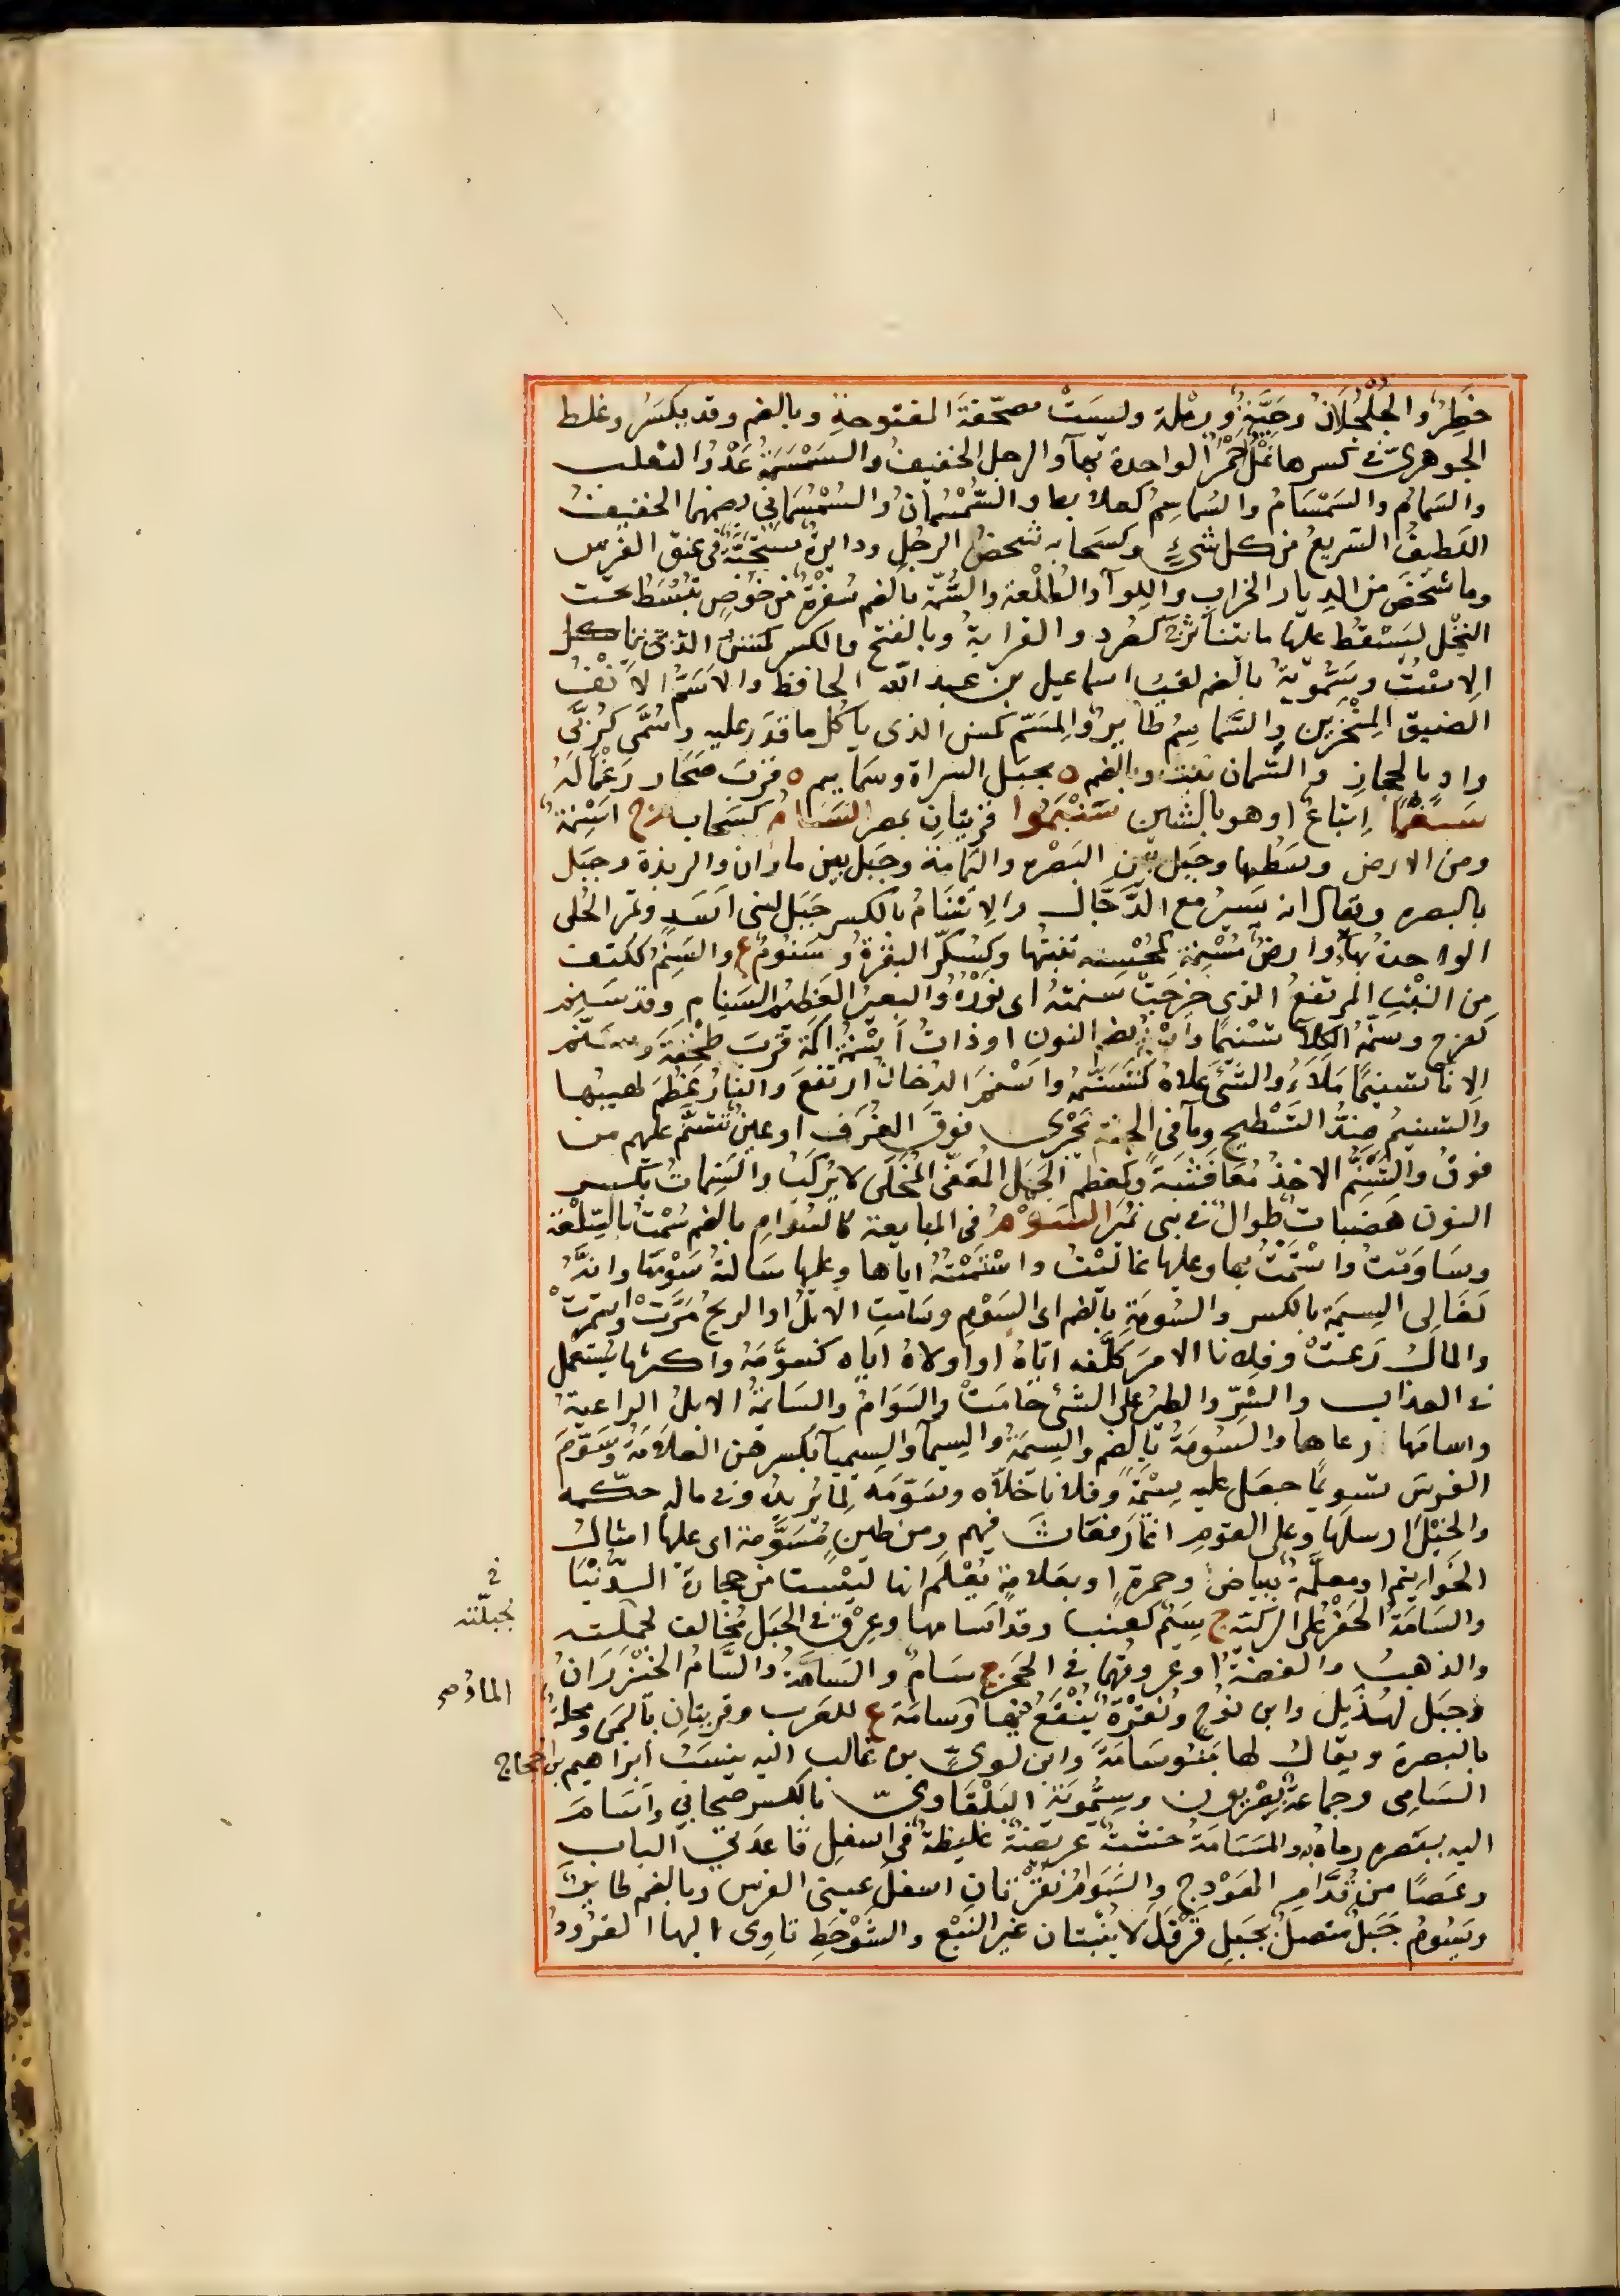 خَطِرٌ والجُلْجُلَانُ وحَيَّةٌ ورملة وليسَتْ مصحّفةَ المفتوحةِ وبالضم وقد يكسَرُ وغلط
الجوهرىّ فى كسرها نَمْلٌ حُمْرٌ الواحدة بهآ والرجل الخفيفُ والسَمْسَمَةُ عَدْوُ الثعلب
والسَمائم والسَمْسَامُ والسُماسِمُ كعلابط والسُّمْسُمَانُ والسُمْسُمَانى بضمهما الخفيفُ
اللطيفُ السَريعُ من كل شىءٍ وكسَحابه شخصُ الرجُلِ ودايرةٌ تستحبّ فى عنق الفرس
وما شخَصَ من الديار الخراب واللوآ والطلْعة والسُّمّة بالضم سُفْرةٌ من خُوصٍ تُبْسَطُ تحت
النخْل ليسْقُطَ عليها ما يتناثرُ ج كصُرد والقرابةُ وبالفتح والكسر
الاِسْتُ وسَمُّويةُ بالضم لقب اسماعيل بن عبد اللّه الحافظ والاَسَمُّ الاَنْفُ
الضيق المِنْخَرَين والسَّماسِمُ طايرٌ والمِسَمّ كمِسَن الذى يأكُل ما قدَر عليه وسُمَّى كرُبَّى
وادٍ بالحجاز والسّمان نبت وبالضم ة بجبَل السراة وسَماييم ة قربَ صُحَار رَغْمًا لَهُ
سَِنْمًا اِتباعٌ او هو بالشين سَنْبَمُوا قريتانِ بمصر السَنَامُ كسَحاب م ج اَسْنِمةٌ
ومن الارض وسَطُها وجَبل بين البَصْره واليمامة وجَبَل بين ماوان والربذة وجبَل
بالبصره ويقال انه يَسيرُ مع الدَّجّال والاِسْنَامُ بالكسر جَبَل لبنى اَسَدٍ وثمر الحُلى
الواحدة بهاء وارضٌ مُسْنِمة كمُحْسِنه تنبتُها وكسُكّرٍ البقرةُ وسَنُّومٌ ع والسَنِمُ ككتف
مِن النبْتِ المرتفعُ الذى خرجَتْ سنمتهُ اى نَوْرُهُ والبعيرُ العظيم السَنامِ وقد سَنِم
كفرح وسنّمهُ الكلآُ تسْنيمًا واسْنُمة بضم النون او ذاتُ اَسْنُمة اكمَة قربَ طِخْفَةَ وسَنّم
الاِنآ تسنيمًا مَلَأَهُ والشَئ عَلاهُ كتَسَنّمه واَسْنَمَ الدخان ارتفع والنارُ عظُمَ لهيبُها
والتسنيمُ ضِدُّ التَسْطيح ومآ فى الجنّة يَجْرى فوق الغُرَف او عينٌ تتسنّم عليهم من
فوقُ والتَسَنُّم الاخذُ مُغافَصَةً وكمعظم الجَمَل المُعَفّى المُخَلَّى لا يُركَبُ والسَنِماتُ بكسر
النون هَضَبات طِوالٌ فى بنى نُمَير السَوْمُ فى المبايعة كالسُوامِ بالضم سُمْتُ بالسِّلْعة
وسَاوَمْتُ واسْتَمْتُ بها وعليها غَالَيْتُ واسْتَمْتُهُ اياها وعليها سَالتُهُ سَوْمَها وانّهُ
لَغَالِى السِيمَة بالكسر والسُومَةِ بالضم اى السَوْمِ وسَامتِ الابلُ او الريحُ مَرَّت واستَمرتْ
والمالُ رَعَتْ وفلانا الامرَ كلَّفه ايّاهُ او اولاهُ اياه كسَوَّمَهُ واكثر ما يُستعمل
فى العذاب والشرّ والطيرُ على الشئ حَامَتْ والسَوَامُ والسَائمَةُ الابلُ الراعيةُ
واسامَها رعاها والسُومَةُ بالضم والسِيمَةُ والسِيمآ والسِيميآ بكسرهن العلَامَةُ وسَوَّمَ
الفرسَ تسويمًا جعَل عليه سِيْمَةً وفلانا خَلاّه وسَوّمَه لما يُريدُهُ وفى مالِه حكّمه
والخَيْلَ ارسلَها وعلى القومِ اغارَ فعَاثَ فيهم ومن طينٍ مُسَوَّمة اى عليها امثالُ
الخواتيم او معلَّمةً ببياض وحمرةٍ او بعَلامةٍ يُعْلَم انها ليْسَت من حجارة الدُّنْيَا
والسَامَةُ الحَفْرُ على الركيّة ج سِيَمٌ كعِنَب وقد اَسامها وعِرْقٌ فى الجَبَل مُخالف لجبلّته
والذهبُ والفضةُ او عروقُهما فى الحَجَر ج سَامٌ والسَامَّةُ والسَّامُ الخَيْزَرانُ
وجَبَل لهُذَيل وابن نوحٍ ونُقْرَةٌ يُنْقَعُ فيها وسَامَة ع للعَرب وقريتانِ باليمَن ومحلةٌ
بالبصرة ويقالُ لها بَنُو سَامَةَ وابن لوىّ بن غالب اليه ينسَبُ ابراهيم بن الحجاج
السَامِى وجماعةٌ بصْريون وسِيْمُويَهْ البَلْقَاوىّ بالكسر صحَابي واَسَامَ
اليه ببصَره رماهُ به والمَسَامَةُ خشبةٌ عريضةٌ غليظة فى اسفل قاعدتى الباب
وعَصًا من قدّام الهَوْدج والسَوَامُ نُقْرتانِ اسفل عينى الفرس وبالضم طايرٌ
ويَسُومُ جَبَلٌ متصلٌ بجَبَلِ فَرْقَدٍ لا يُنْبتان غيرَ النَبْع والشَوْحَطِ تاوِى اليها القرُودُ
فى
بجبلّته
الماءُ صح